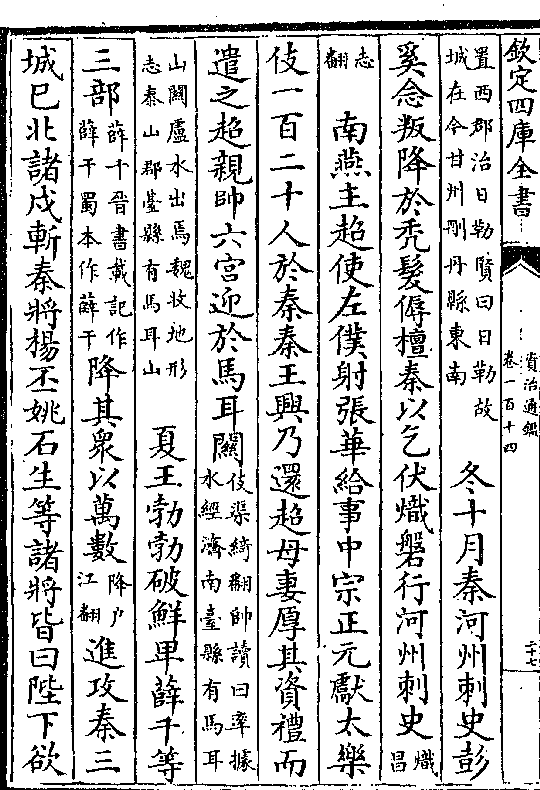 欽定四庫全書
資治通鑑
卷一百十四
二十七
置西郡治日勒賢曰日勒故
城在今甘州刪丹縣東南
冬十月秦河州刺史彭
奚念叛降於秃髮傉檀秦以乞伏熾磐行河州刺史
熾
昌
志
翻
南燕主超使左僕射張華給事中宗正元獻太樂
伎一百二十人於秦秦王興乃還超母妻厚其資禮而
遣之超親帥六宮迎於馬耳關
伎渠綺翻帥讀曰率據
水經濟南臺縣有馬耳
山關盧水出焉魏收地形
志泰山郡臺縣有馬耳山
夏王勃勃破鮮卑薛千等
三部
薛千晉書載記作
薛干蜀本作薛干
降其衆以萬數
降户
江翻
進攻秦三
城已北諸戍斬秦將楊丕姚石生等諸將皆曰陛下欲